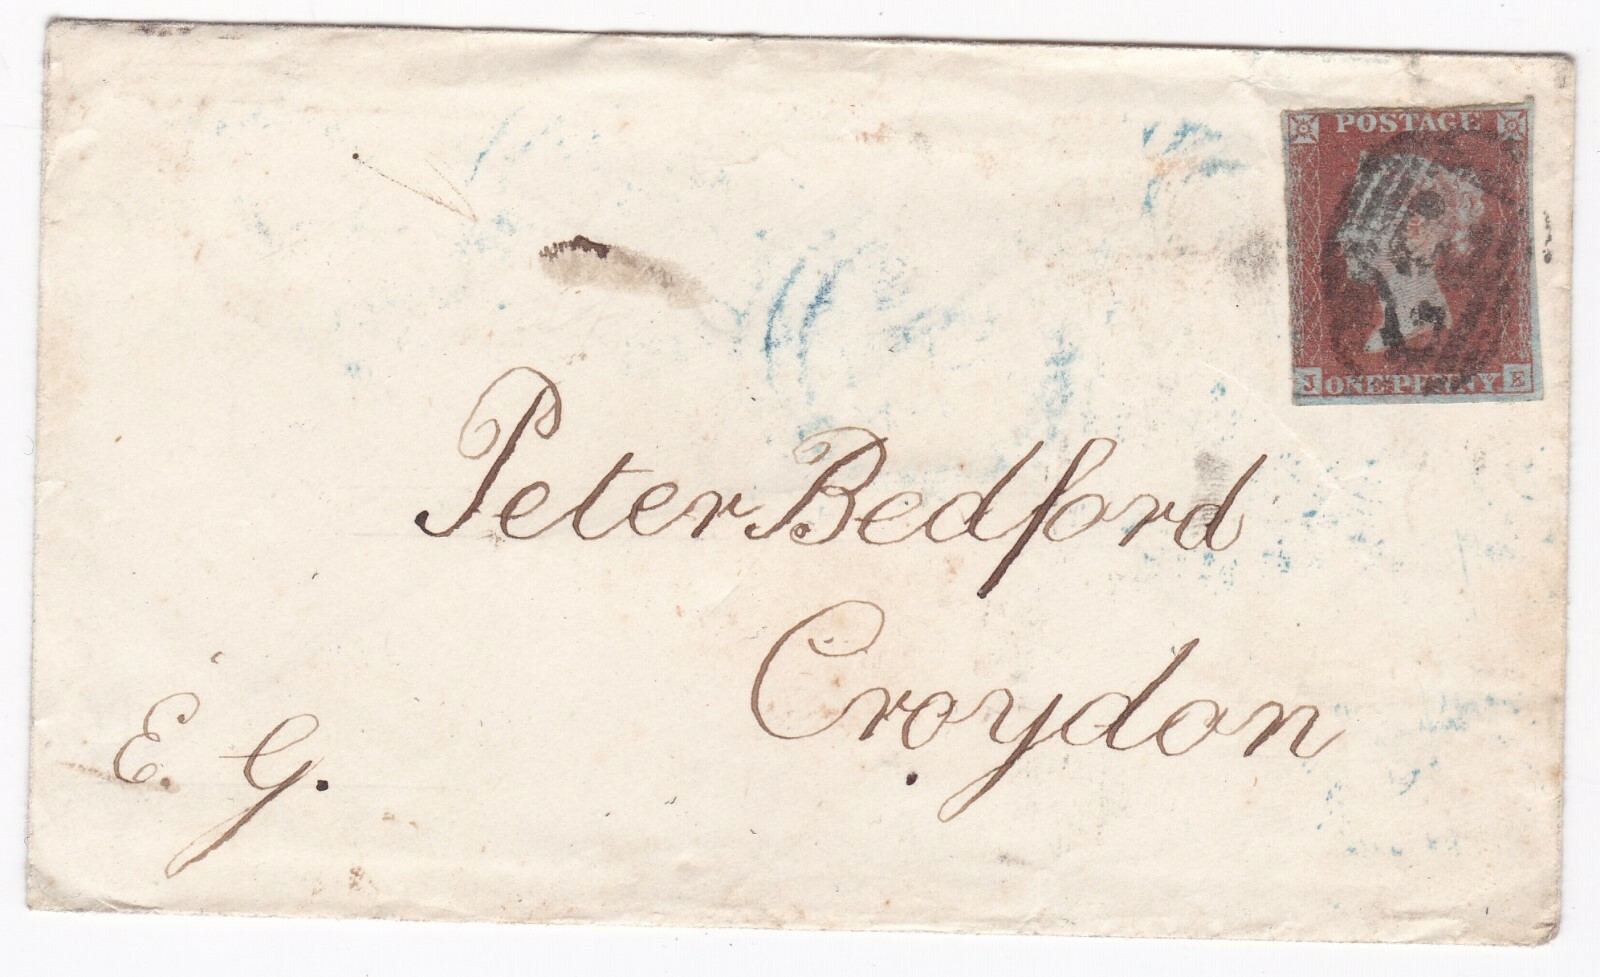 POSTAGE
J ONE PENNY E
Peter Bedford
Croydon
E. G.